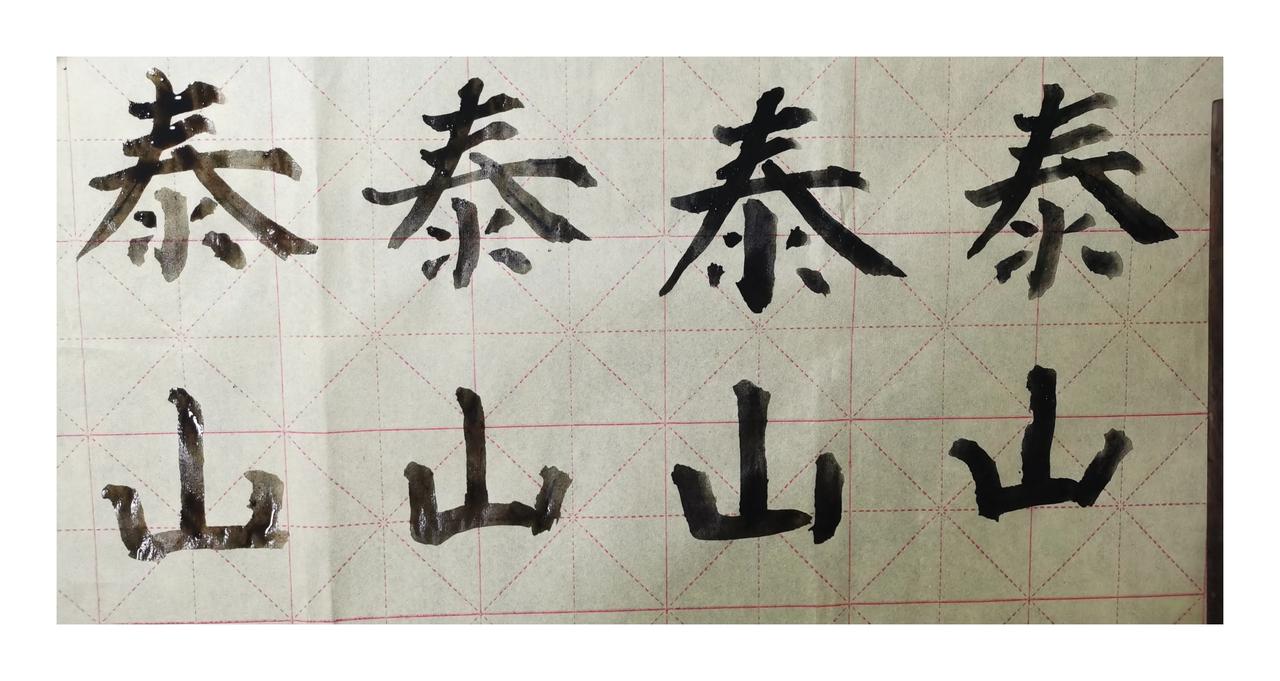 泰山
泰山
泰山
泰山